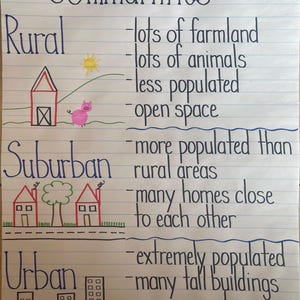 Communities
Rural
-lots of farmland
-lots of animals
-less populated
-open space
Suburban
-more populated than
rural areas
-many homes close
to each other
Urban
-extremely populated
-many tall buildings